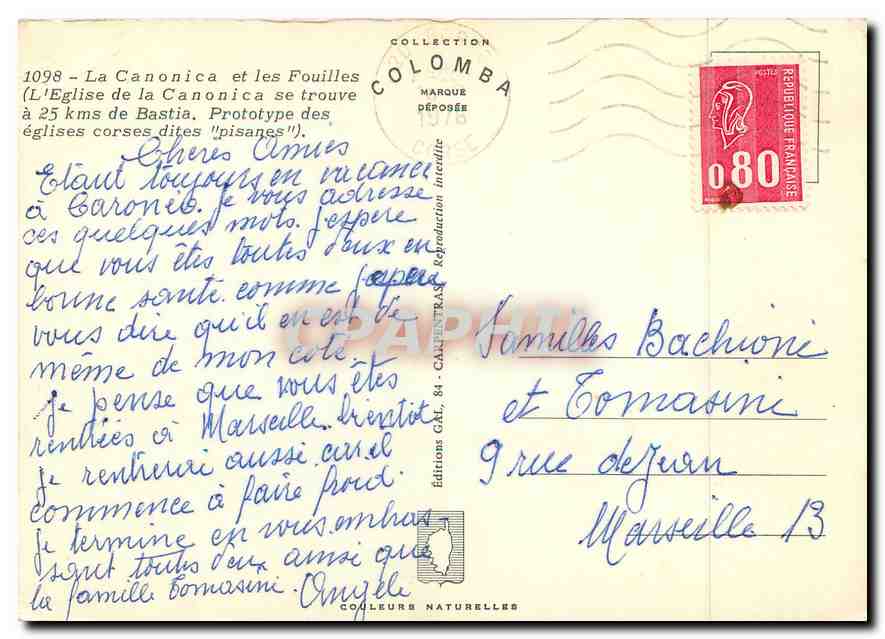 COLLECTION
COLOMBA
MARQUE
DÉPOSÉE
1978
CORSE
1098 - La Canonica et les Fouilles
(L'Eglise de la Canonica se trouve
à 25 kms de Bastia. Prototype des
églises corses dites "pisanes").
POSTES
REPUBLIQUE FRANÇAISE
0,80
Chères Amies
Etant toujours en vacance
à je vous adresse
ces quelques mots. j'espere
que vous êtes toutes deux en
bonne santé comme
vous dire qu'il en est de
même de mon coté.
je pense que vous êtes
rentrées à Marseille. bientôt
je rentrerai aussi car il
commence à faire froid.
je termine en vous embras-
sant toutes deux ainsi que
la famille Tomasini. Angèle
Editions GAL, 84 - CARPENTRAS, Reproduction interdite
CPAPHIL
Familles Bachioni
et Tomasini
9 rue de Jean
Marseille 13
COULEURS NATURELLES